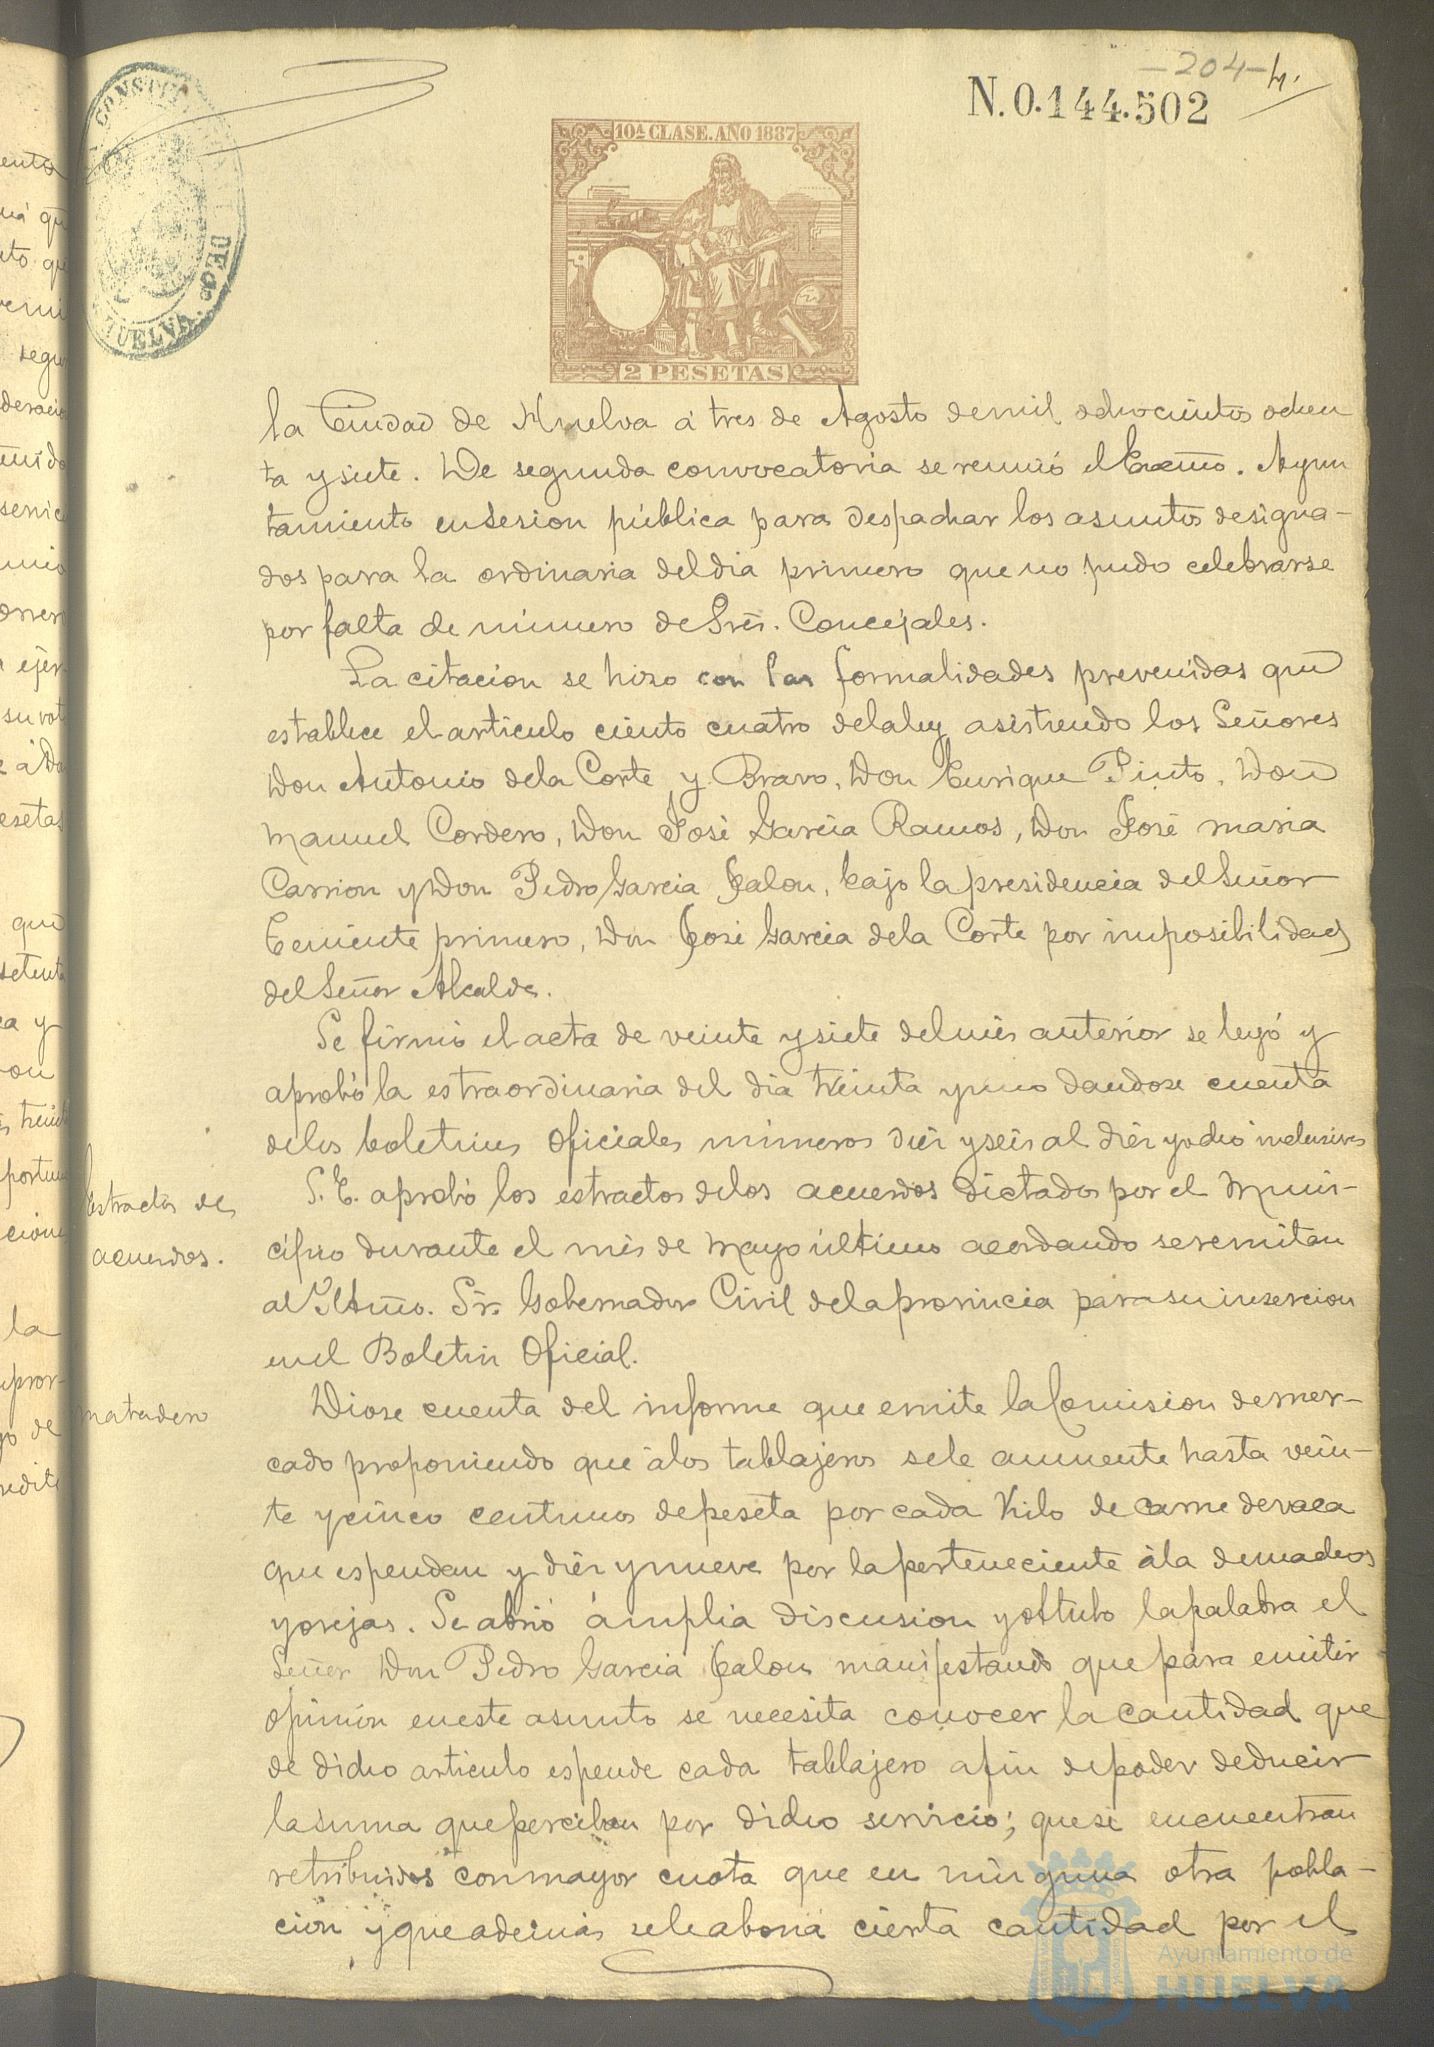 -204- 4.
N. 0.144.502
CONSTIT
HUELVA.
10ª CLASE. AÑO 1887
2 PESETAS
la Ciudad de Huelva á tres de Agosto de mil ochocientos ochen
ta y siete. De segunda convocatoria se reunió el Excmo. Ayun
tamiento en sesion pública para despachar los asuntos designa-
dos para la ordinaria del dia primero que no pudo celebrarse
por falta de número de Sres. Concejales.
La citacion se hizo con las formalidades prevenidas que
establece el articulo ciento cuatro de la ley asistiendo los Señores
Don Antonio de la Corte y Bravo, Don Enrique Pinto, Don
Manuel Cordero, Don José Garcia Ramos, Don José maria
Carrion y Don Pedro Garcia Jalon, bajo la presidencia del Señor
Teniente primero, Don José Garcia de la Corte por imposibilidad
del Señor Alcalde.
Se firmó el acta de veinte y siete del més anterior se leyó y
aprobó la estraordinaria del dia treinta y uno dandose cuenta
de los boletines oficiales números diez y seis al diez y ocho inclusives
Estractos de
acuerdos.
S. E. aprobó los estractos de los acuerdos dictados por el Muni-
cipio durante el més de Mayo último acordando se remitan
al Iltmo. Sr. Gobernador Civil de la provincia para su insercion
en el Boletin Oficial.
matadero
Diose cuenta del informe que emite la Comision de mer-
cado proponiendo que á los tablajeros se le aumente hasta vein-
te y cinco centimos de peseta por cada Kilo de carne de vaca
que espendan y diez y nueve por la perteneciente á la de machos
y orejas. Se abrió ámplia discusion y obtubo la palabra el
Señor Don Pedro Garcia Jalon manifestando que para emitir
opinión en este asunto se necesita conocer la cantidad que
de dicho articulo espende cada tablajero a fin de poder deducir
la suma que perciben por dicho servicio; que si encuentran
retribuidos con mayor cuota que en ninguna otra pobla-
ción y que además se le abona cierta cantidad por el
Ayuntamiento de
HUELVA